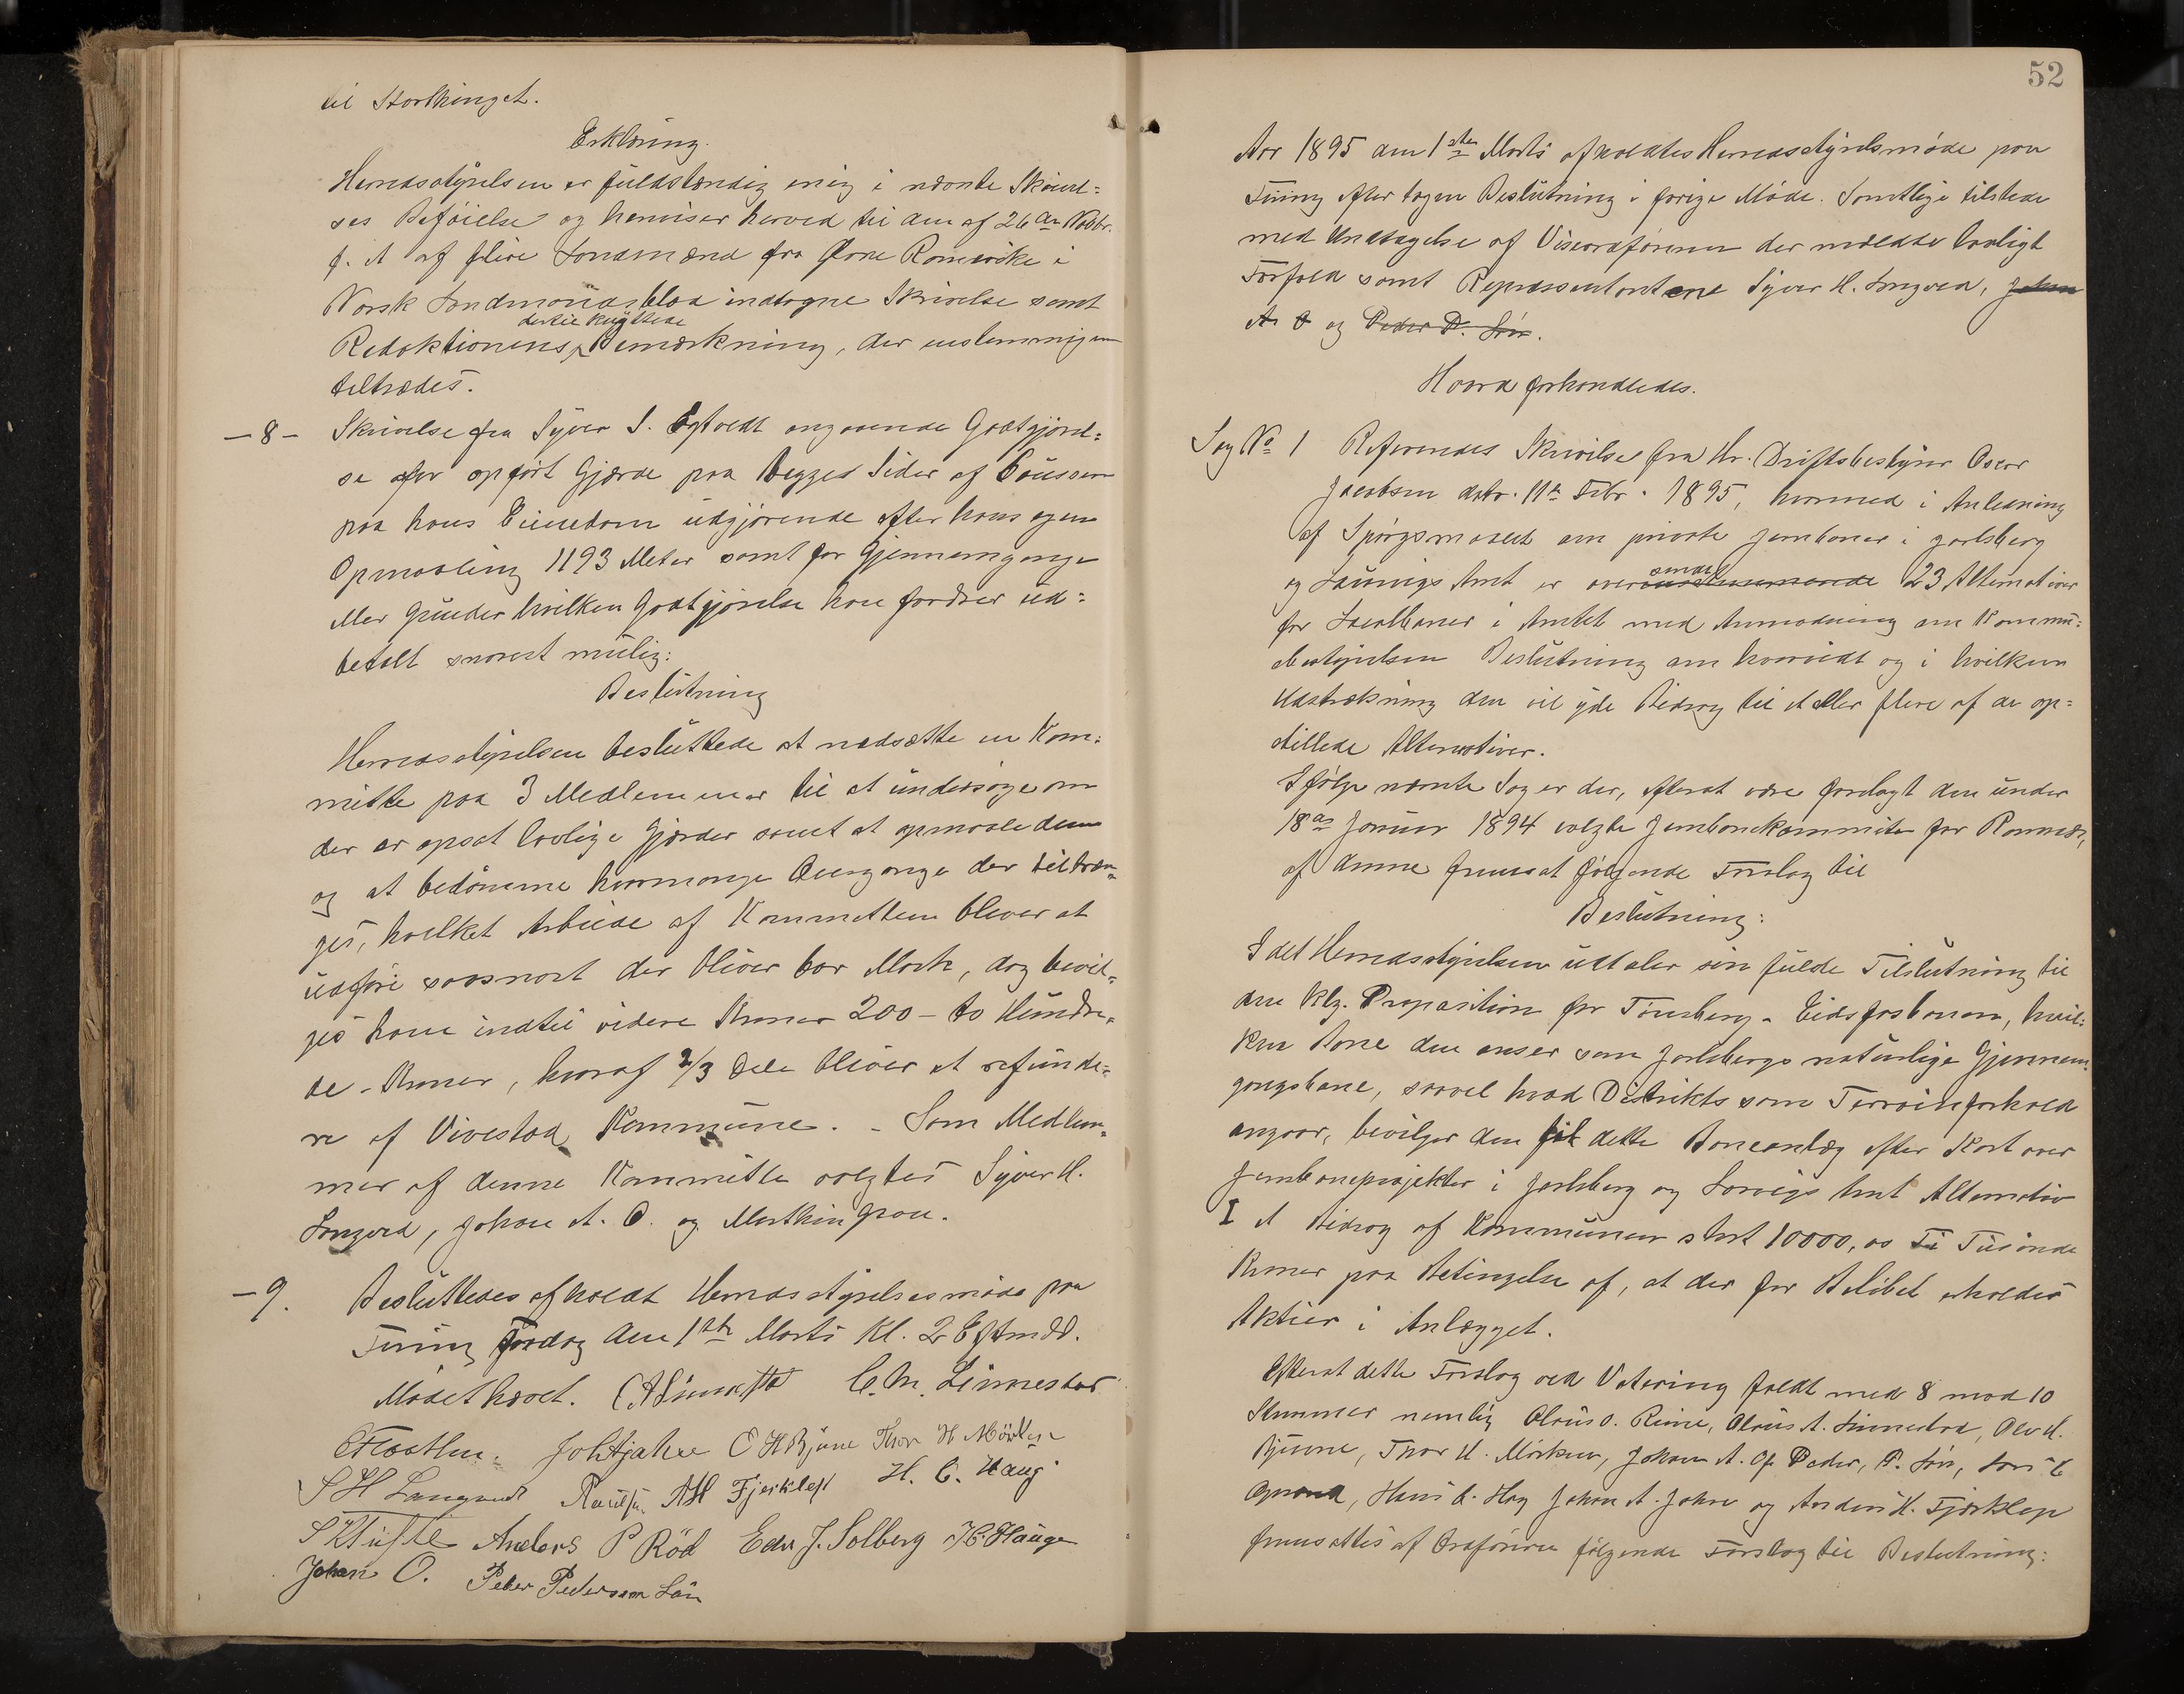 til Storthinget.
Erklæring.
Herredsstyrelsen er fuldstændig enig i nævnte Skrivel=
ses Beføielse og henviser herved til den af 26de Novbr.
f. A af flere Landmænd fra Øvre Romerike i
Norsk Landmandsblad indtagne Skrivelse samt
dertil knyttede
Redaktionens Bemærkning, der enstemmigen
tiltrædes.
- 8 - Skrivelse fra Syver S. angaaende Godtgjørel=
se for opført Gjærde paa begges Sider af
paa hans Eiendom udgjørende efter hans egen
Opmaaling 1193 Meter samt for Gjennemgange
eller Grinder hvilken Godtgjørelse han fordrer ud=
betalt snarest mulig:
Beslutning
Herredsstyrelsen besluttede at nedsætte en Kom=
mitte paa 3 Medlemmer til at undersøge om
der er opsat lovlige Gjærder samt at opmaale dem
og at bedømme hvormange Overgange der tiltræn=
ges, hvilket Arbeide af Kommitteen bliver at
udføre saasnart der bliver bar Mark, dog bevil=
ges ham indtil videre Kroner 200 - to Hundre=
de - Kroner, hvoraf 2/3 Dele bliver at refunde=
re af Vivestad Kommune. - Som Medlem=
mer af denne Kommitte valgtes Syver H.
Langved, Johan A. O. og Mathis Graae.
- 9. Besluttedes afholdt Herredsstyrelsesmøde paa
Furing Fredag den 1ste Marts Kl. 2 Eftmdd.
Mødet hævet. C. M. Linnestad
Joh Ajahre O H Bjune Thor H Mörken
S H Langved A H Fjerklep H. C. Haug
S K Tufte Anders P Röd Edv J. Solberg H. Hauge
Johan O. Peter Pedersen Sön
52
Aar 1895 den 1ste Marts afholdtes Herredsstyrelsmøde paa
Furing efter tagen Beslutning i forrige Møde. Samtlige tilstede
med Undtagelse af Viseordføreren der meldte lovligt
Forfald samt Repræsentantene Syver H. Langved, Johan
A. O og Peder P. Sön.
Hvorda forhandledes.
Sag No 1 Refereredes Skrivelse fra Hr. Driftsbestyrer Oscar
Jacobsen datr. 11te Febr. 1895, hvormed i Anledning
af Spørgsmaalet om private Jernbaner i Jarlsberg
sendes
og Laurvigs Amt er over 23 Alternativer
for Localbaner i Amtet med Anmodning om Kommu=
bestyrelsen Beslutning om hvorvidt og i hvilken
Udstrækning den vil yde Bidrag til et eller flere af de op=
stillede Alternativer.
Ifølge nævnte Sag er der, efterat være forelagt den under
18de Januar 1894 valgte Jernbanekommite for Ramnes,
af denne fremsat følgende Forslag til
Beslutning:
I det Herredsstyrelsen udtaler sin fulde Tilslutning til
den Klg. Proposition for Tønsberg - Eidsfosbanen, hvil=
ken Bane den anser som Jarlsbergs naturlige Gjennem=
gangsbane, saavel hvad Distrikts som Terrainforhold
angaar, bevilger den til dette Baneanlæg efter Kart over
Jernbaneprojekter i Jarlsberg og Larvigs Amt Alternativ
I et Bidrag af Kommunen stort 10000, os Ti Tusinde
Kroner paa Betingelse af, at der for Beløbet erholdes
Aktier i Anlægget.
Efterat dette Forslag ved Votering faldt med 8 mod 10
Stemmer nemlig Olaus O. Reine, Olaus A. Linnestad, Ole H.
Bjune, Thor H. Mörken, Johan A. O, Peder, P. Sön, Lars C
Hans C. Hog Johan A. Jahre og Anders H. Fjærklep
fremsattes af Ordføreren følgende Forslag til Beslutning: